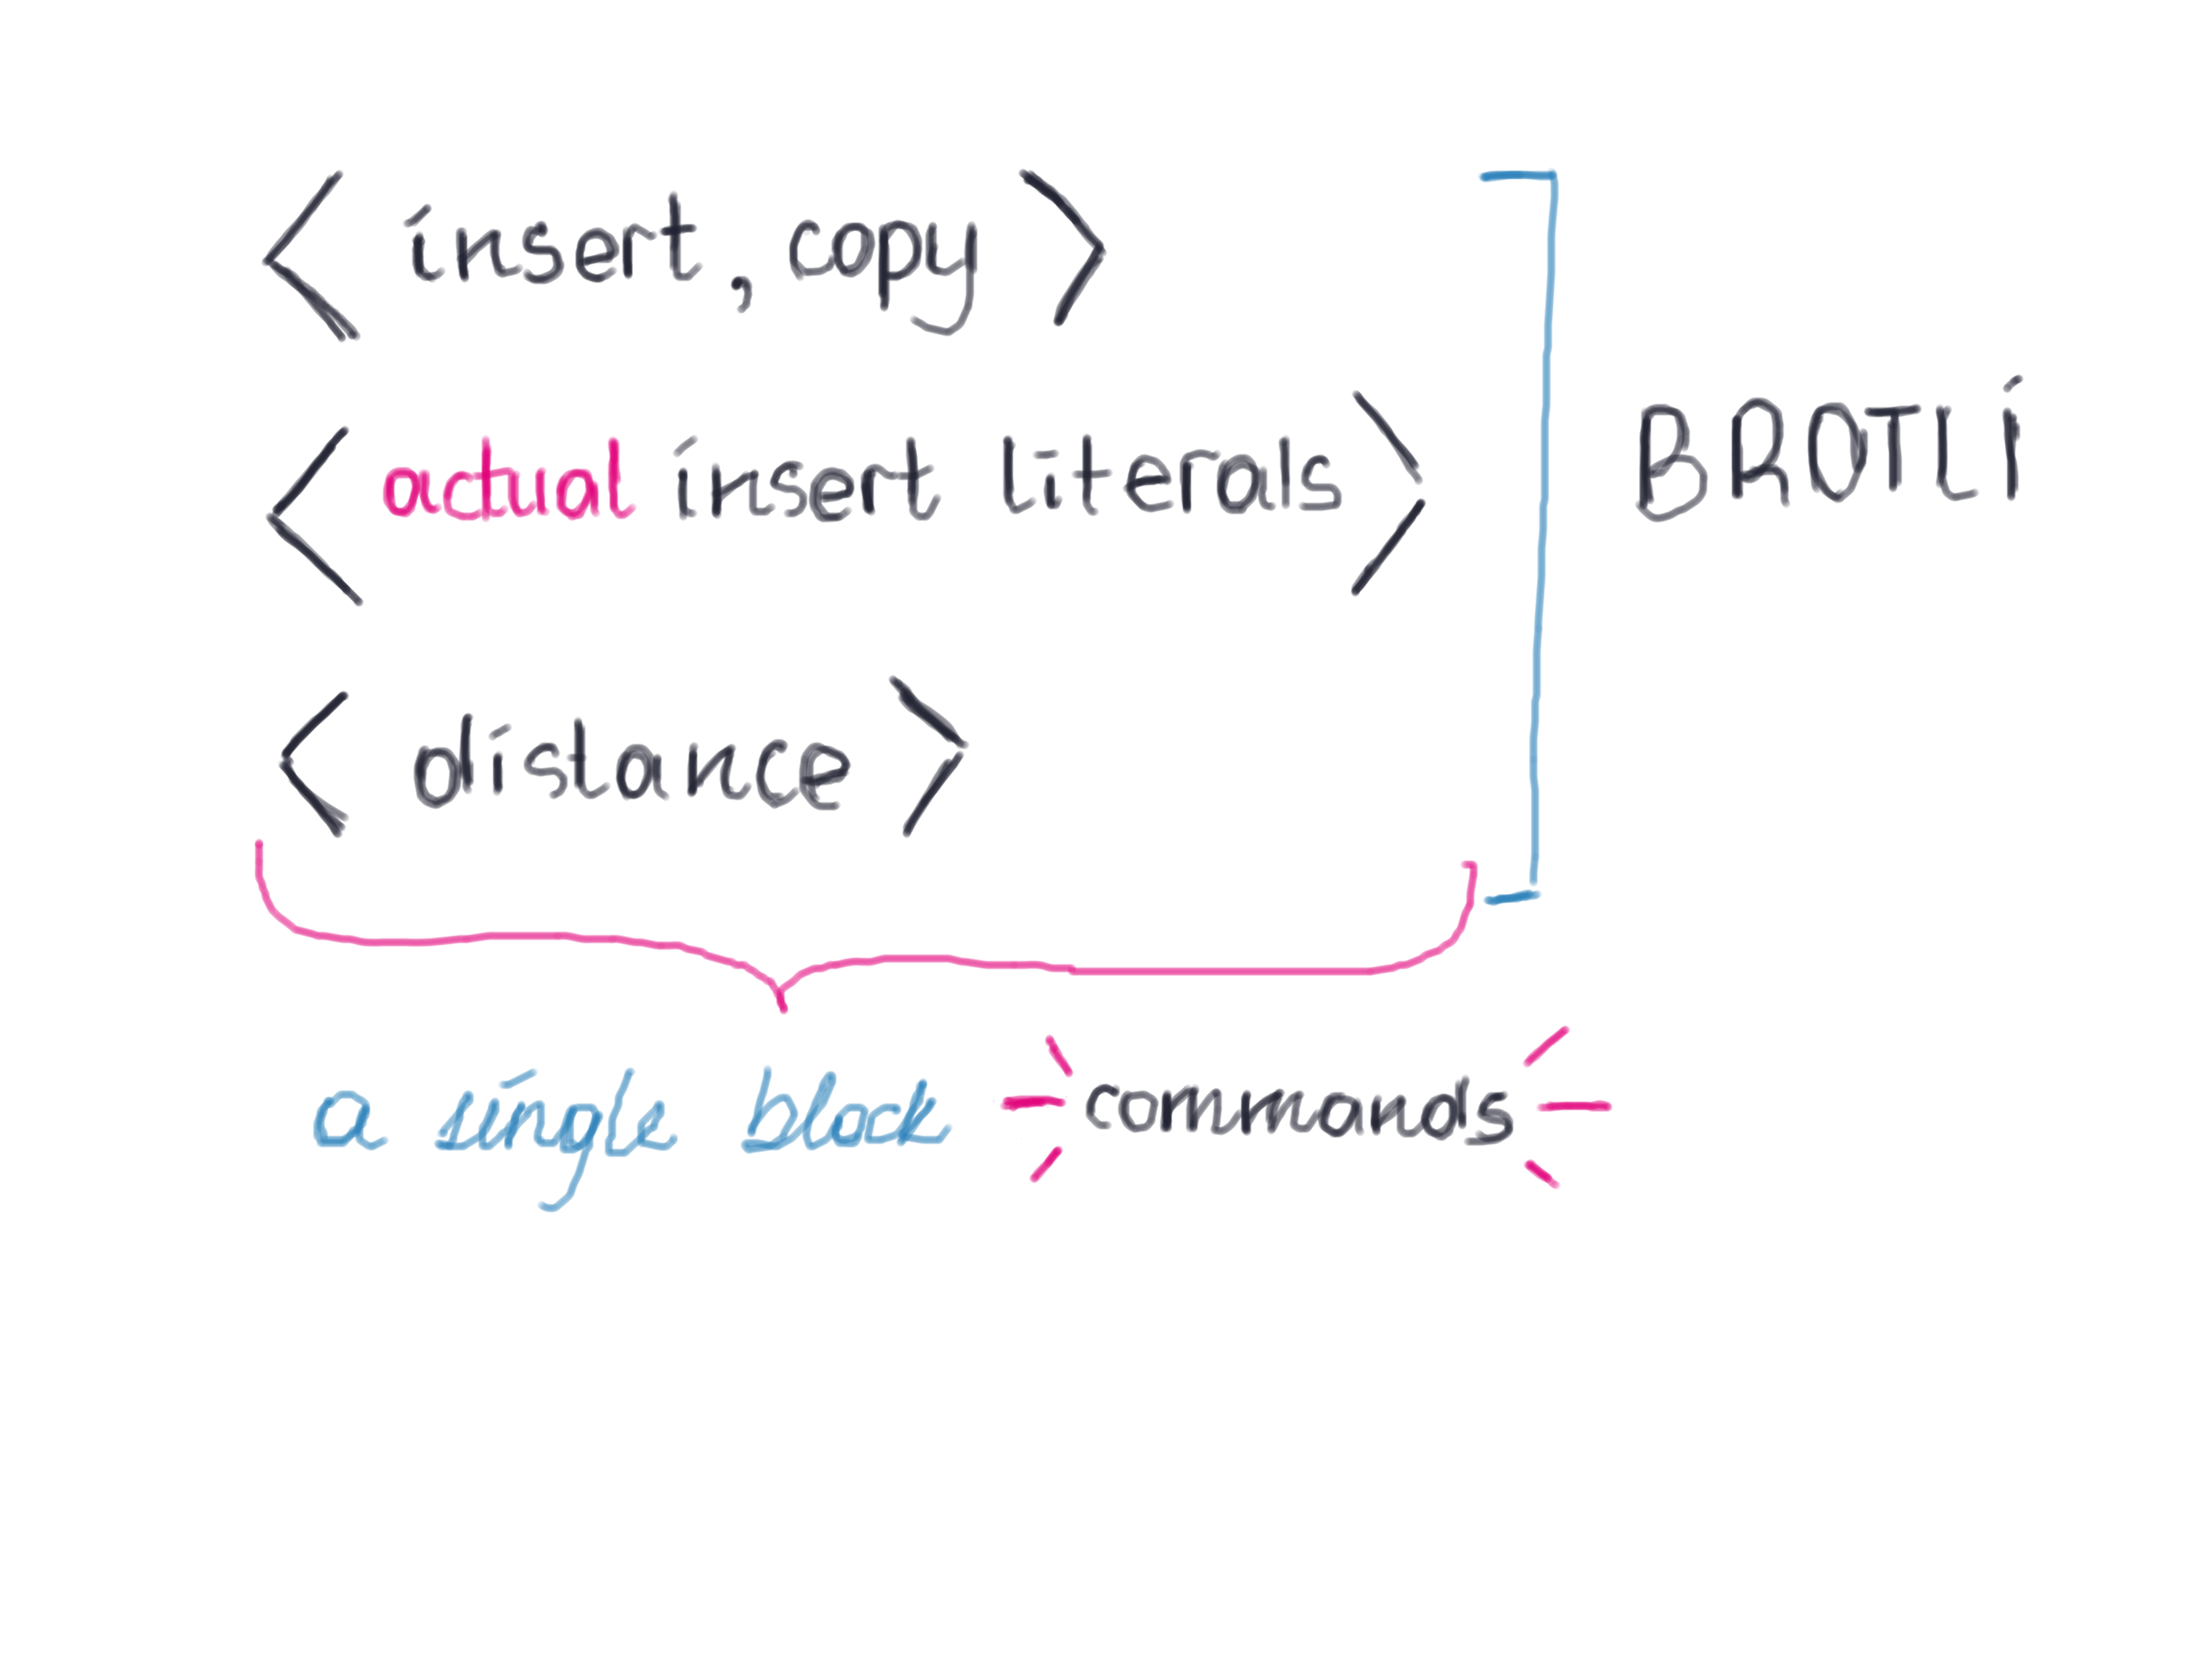 < insert, copy >
< actual insert literals >
BROTLI
< distance >
a single block commands